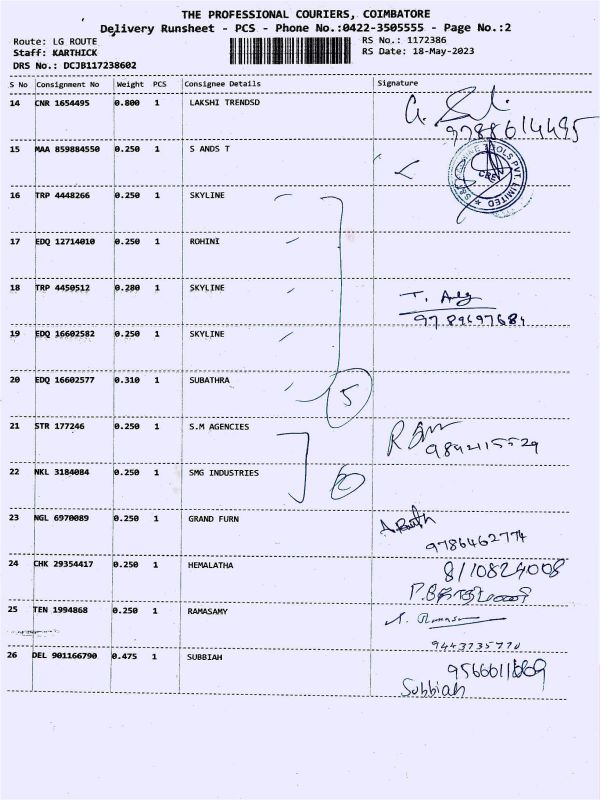 THE PROFESSIONAL COURIERS, COIMBATORE
Delivery Runsheet - PCS - Phone No.:0422-3505555 - Page No.:2
Route: LG ROUTE
Staff: KARTHICK
DRS No.: DCJB117238602
RS No.: 1172386
RS Date: 18-May-2023
S No Consignment No Weight PCS Consignee Details Signature
14 CNR 1654495 0.800 1 LAKSHI TRENDSD
9788614495
15 MAA 859884550 0.250 1 S ANDS T
TOOLS PVT. LIMITED
16 TRP 4448266 0.250 1 SKYLINE
17 EDQ 12714010 0.250 1 ROHINI
18 TRP 4450512 0.280 1 SKYLINE
9789697684
19 EDQ 16602582 0.250 1 SKYLINE
20 EDQ 16602577 0.310 1 SUBATHRA
5
21 STR 177246 0.250 1 S.M AGENCIES
9842115529
22 NKL 3184084 0.250 1 SMG INDUSTRIES
23 NGL 6970089 0.250 1 GRAND FURN
9786462774
24 CHK 29354417 0.250 1 HEMALATHA
8110824008
25 TEN 1994868 0.250 1 RAMASAMY
9443735770
26 DEL 901166790 0.475 1 SUBBIAH
Subbiah